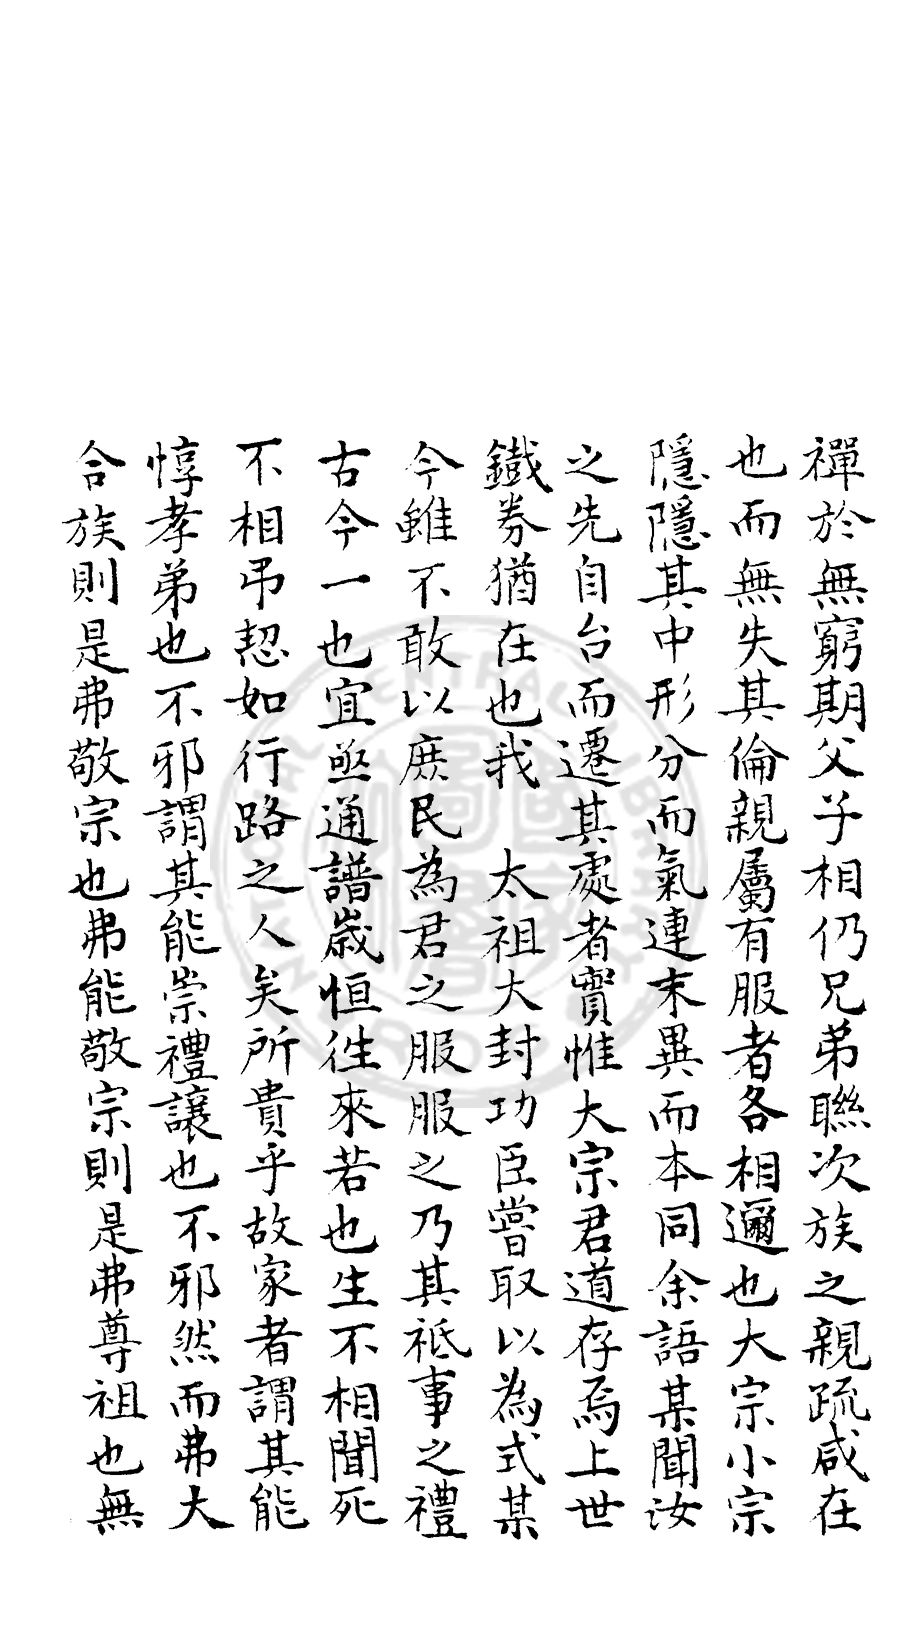 禪於無窮期父子相仍兄弟聯次族之親疏咸在
也而無失其倫親屬有服者各相邇也大宗小宗
隱隱其中形分而氣連末異而本同余語某聞汝
之先自台而遷其處者實惟大宗君道存焉上世
鐵券猶在也我 太祖大封功臣嘗取以為式某
今雖不敢以庶民為君之服服之乃其祗事之禮
古今一也宜亟通譜歲恒徃來若也生不相聞死
不相弔恝如行路之人矣所貴乎故家者謂其能
惇孝弟也不邪謂其能崇禮讓也不邪然而弗大
合族則是弗敬宗也弗能敬宗則是弗尊祖也無